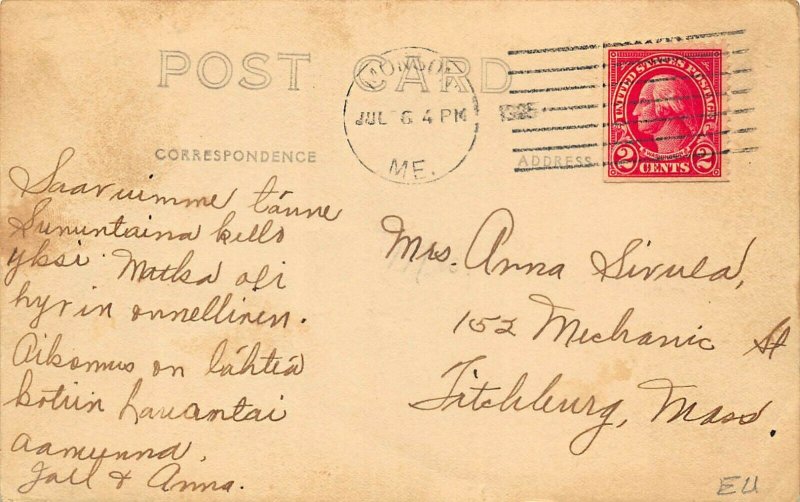 POST CARD
MONSON
JUL 6 4 PM
1925
ME.
UNITED STATES POSTAGE
WASHINGTON
2 CENTS 2
CORRESPONDENCE
ADDRESS
Saavuimme tänne
Sununtaina kello
yksi. Matka oli
hyvin onnellinen.
Aikomus on lähteä
kotiin lauantai
aamunna.
& Anna.
Mrs. Anna Sivula,
152 Mechanic St
Fitchburg, Mass.
EU